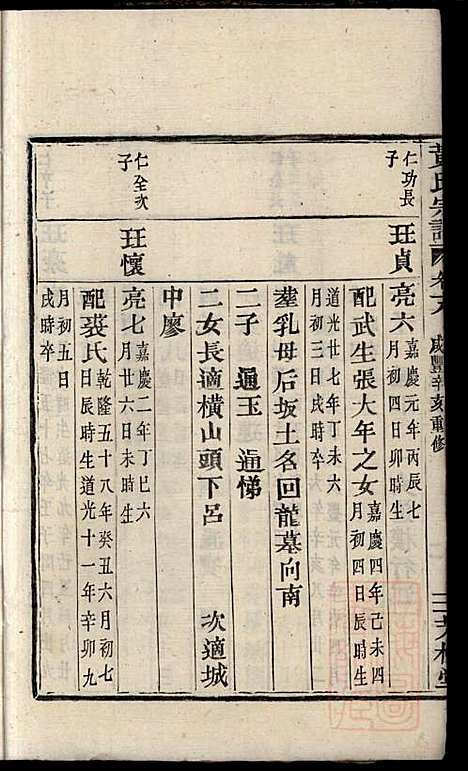 黃氏宗譜 卷 咸豐辛亥重修
仁功長子
玨貞
亮六 嘉慶元年丙辰七月初四日卯時生
配武生張大年之女 嘉慶四年己未四月初四日辰時生
道光廿七年丁未六月初三日戌時卒
塟乳母后坂土名回龍墓向南
二子 通玉 通悌
二女長適橫山頭下呂 次適城
中廖
仁全次子
玨懷
亮七 嘉慶二年丁巳六月廿六日未時生
配裘氏 乾隆五十八年癸丑六月初七日辰時生道光十一年辛卯九
月初五日戌時卒